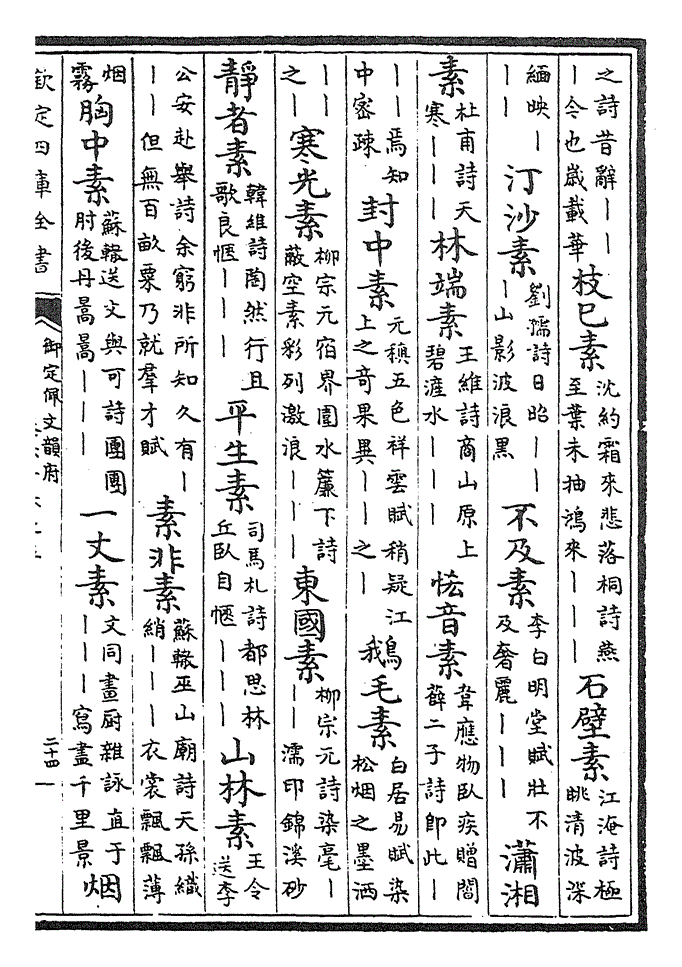 之詩昔辭丨丨丨今也歲載華枝巳素沈約霜來悲落桐詩燕至葉未抽鴻來丨丨丨石壁素江淹詩極眺清波深
緬映丨丨丨汀沙素劉𤅬詩日昭丨丨丨山影波浪黑不及素李白明堂賦壯不及奢麗丨丨丨瀟湘
素杜甫詩天寒丨丨丨林端素王維詩商山原上碧滻水丨丨丨怯音素韋應物卧疾贈閻薛二子詩即此丨
丨丨焉知中密疎封中素元稹五色祥雲賦稍疑江上之奇果異丨丨之丨鵝毛素白居易賦染松烟之墨洒
丨丨之丨寒光素柳宗元宿界圍水簾下詩蔽空素彩列激浪丨丨丨東國素柳宗元詩染毫丨丨丨濡印錦溪砂
靜者素韓維詩陶然行且歌良愜丨丨丨平生素司馬札詩都思林丘臥自愜丨丨丨山林素王令送李
公安赴舉詩余窮非所知久有丨丨丨但無百畝粟乃就羣才賦素非素蘇轍巫山廟詩天孫織綃丨丨丨衣裳飄飄薄
烟霧胸中素蘇轍送文與可詩團團肘後丹暠暠丨丨丨一丈素文同畫厨雜詠直于丨丨丨寫盡千里景烟
欽定四庫全書
御定佩文韻府
二十四